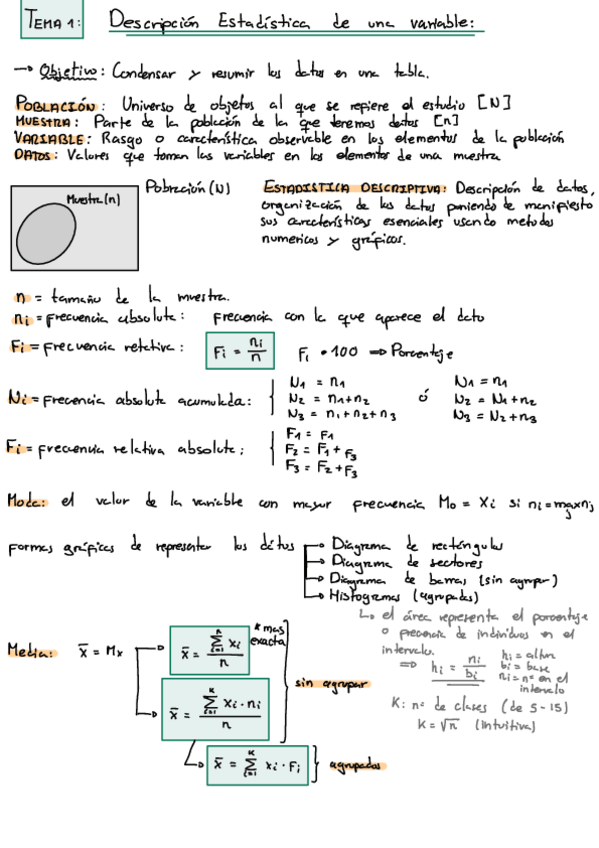 TEMA 1: Descripción Estadística de una variable:
→ Objetivo: Condensar y resumir los datos en una tabla.
POBLACIÓN: Universo de objetos al que se refiere el estudio [N]
MUESTRA: Parte de la población de la que tenemos datos [n]
VARIABLE: Rasgo o característica observable en los elementos de la población
DATOS: Valores que toman las variables en los elementos de una muestra
Muestra (n)
Población (N)
ESTADISTICA DESCRIPTIVA: Descripción de datos,
organización de los datos poniendo de manifiesto
sus características esenciales usando metodos
numericos y gráficos.
n = tamaño de la muestra.
ni = frecuencia absoluta: frecuencia con la que aparece el dato
Fi = frecuencia relativa: Fi = ni/n Fi • 100 ⇒ Porcentaje
Ni = frecuencia absoluta acumulada:
N1 = n1
N2 = n1+n2
N3 = n1+n2+n3
ó
N1 = n1
N2 = N1+n2
N3 = N2+n3
Fi = frecuencia relativa absoluta:
F1 = F1
F2 = F1 + F3
F3 = F2 + F3
Moda: el valor de la variable con mayor frecuencia Mo = Xi si ni = max nj
formas gráficas de representar los datos
Diagrama de rectángulos
Diagrama de sectores
Diagrama de barras (sin agrupar)
Histogramas (agrupados)
↳ el área representa el porcentaje
o presencia de individuos en el
intervalo.
⇒ hi = ni/bi
hi = altura
bi = base
ni = nº en el
intervalo
K: nº de clases (de 5-15)
K = √n (intuitiva)
Media: x̄ = Mx
x̄ = Σ(i=1→n) xi / n
* mas
exacta
x̄ = Σ(i=1→K) xi · ni / n
sin agrupar
x̄ = Σ(i=1→K) xi · Fi
agrupados